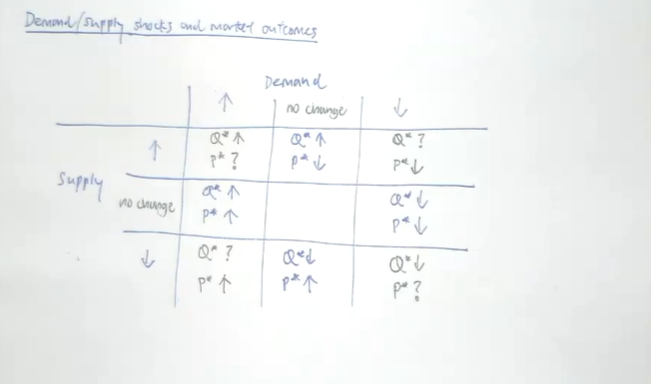 Demand/supply shocks and market outcomes
Demand
↑ no change ↓
↑ Q* ↑ Q* ↑ Q* ?
P* ? P* ↓ P* ↓
Supply
no change Q* ↑ Q* ↓
P* ↑ P* ↓
↓ Q* ? Q* ↓ Q* ↓
P* ↑ P* ↑ P* ?